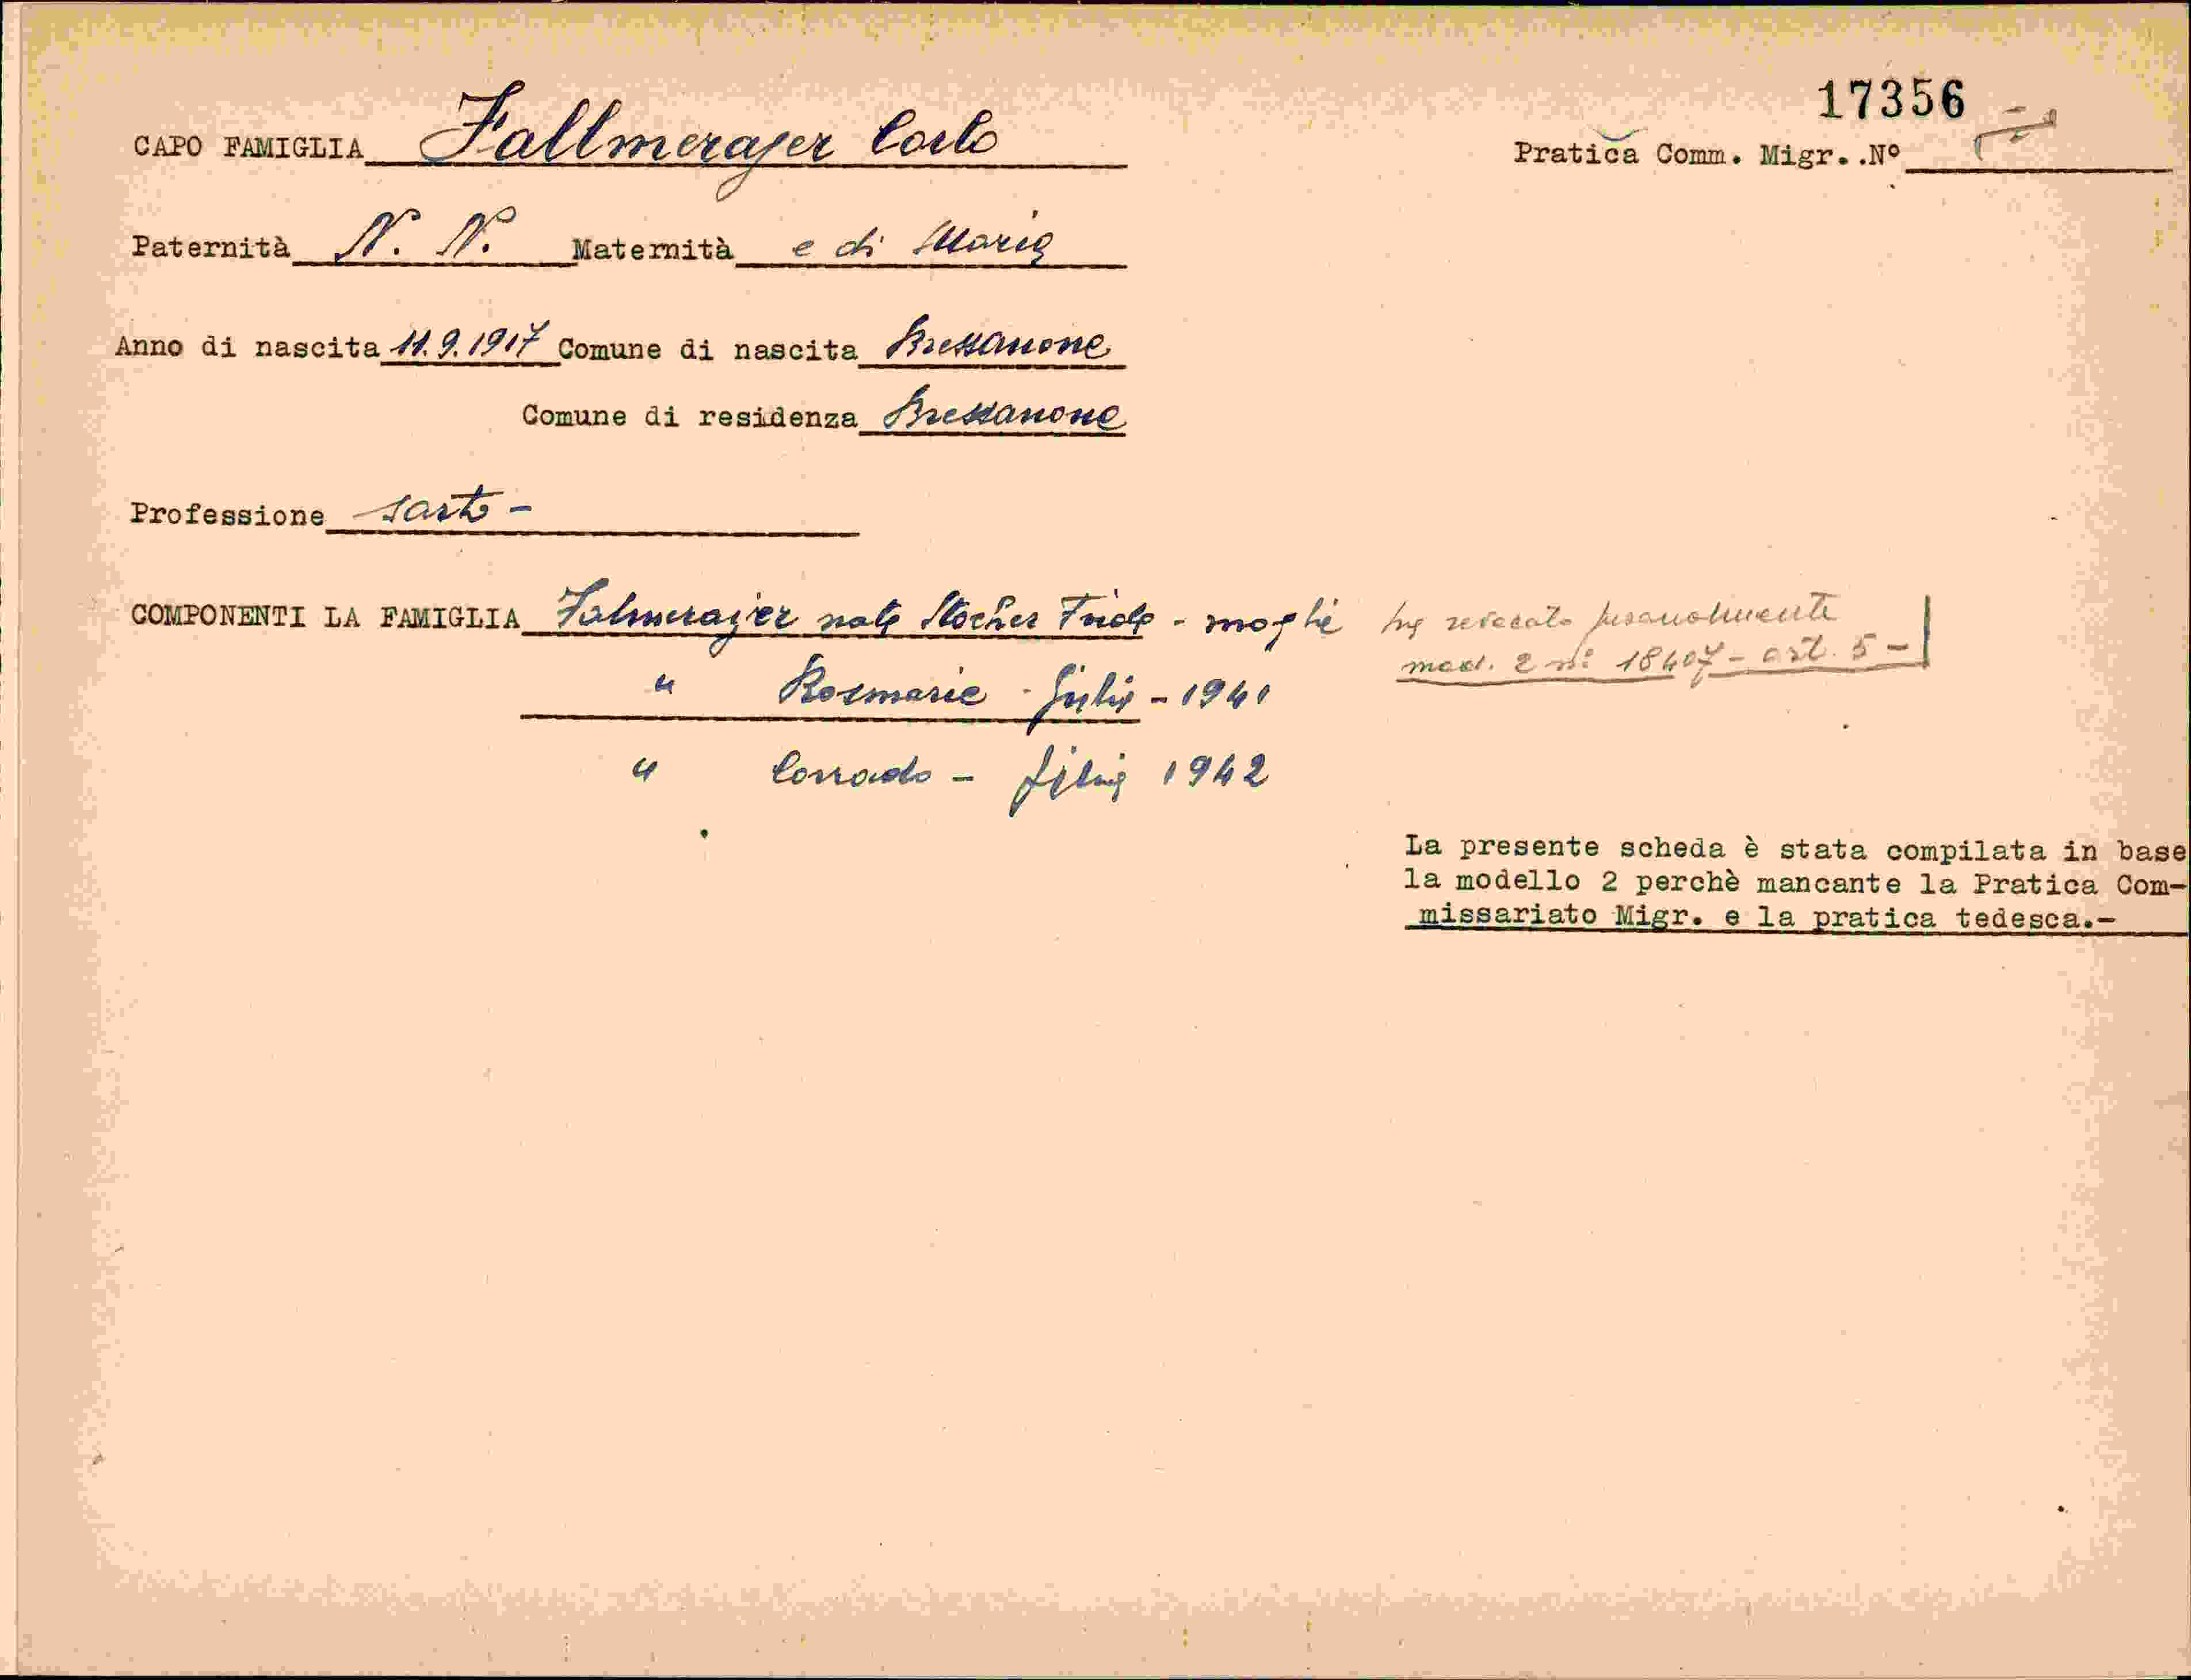 17356
CAPO FAMIGLIA Fallmerajer Carlo
Pratica Comm. Migr. .Nº
Paternità N. N. Maternità e di Maria
Anno di nascita 11.9.1917 Comune di nascita Bressanone
Comune di residenza Bressanone
Professione sarto -
COMPONENTI LA FAMIGLIA Falmerajer nata Stocker Frida - moglie ha revocato personalmente
mod. 2 nº 18407 - art. 5 -
" Rosmarie - figlia - 1941
" Corrado - figlio 1942
La presente scheda è stata compilata in base
la modello 2 perchè mancante la Pratica Com-
missariato Migr. e la pratica tedesca.-